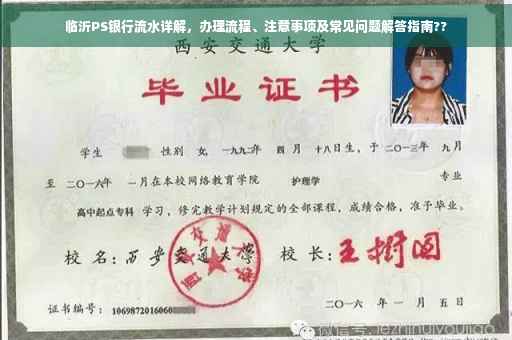 临沂PS银行流水详解，办理流程、注意事项及常见问题解答指南??
西安交通大学
毕业证书
学生 性别 女，一九九二年 四月 十八日生，于二〇一三年 九月
至 二〇一六年 一月在本校网络教育学院 护理学 专业
高中起点专科 学习，修完教学计划规定的全部课程，成绩合格，准予毕业。
校 名：西安交通大学 校 长：王树国
西安交通大学
证书编号：1069872016060
二〇一六 年 一 月 五 日
微信号: jezhihuiyoujiao